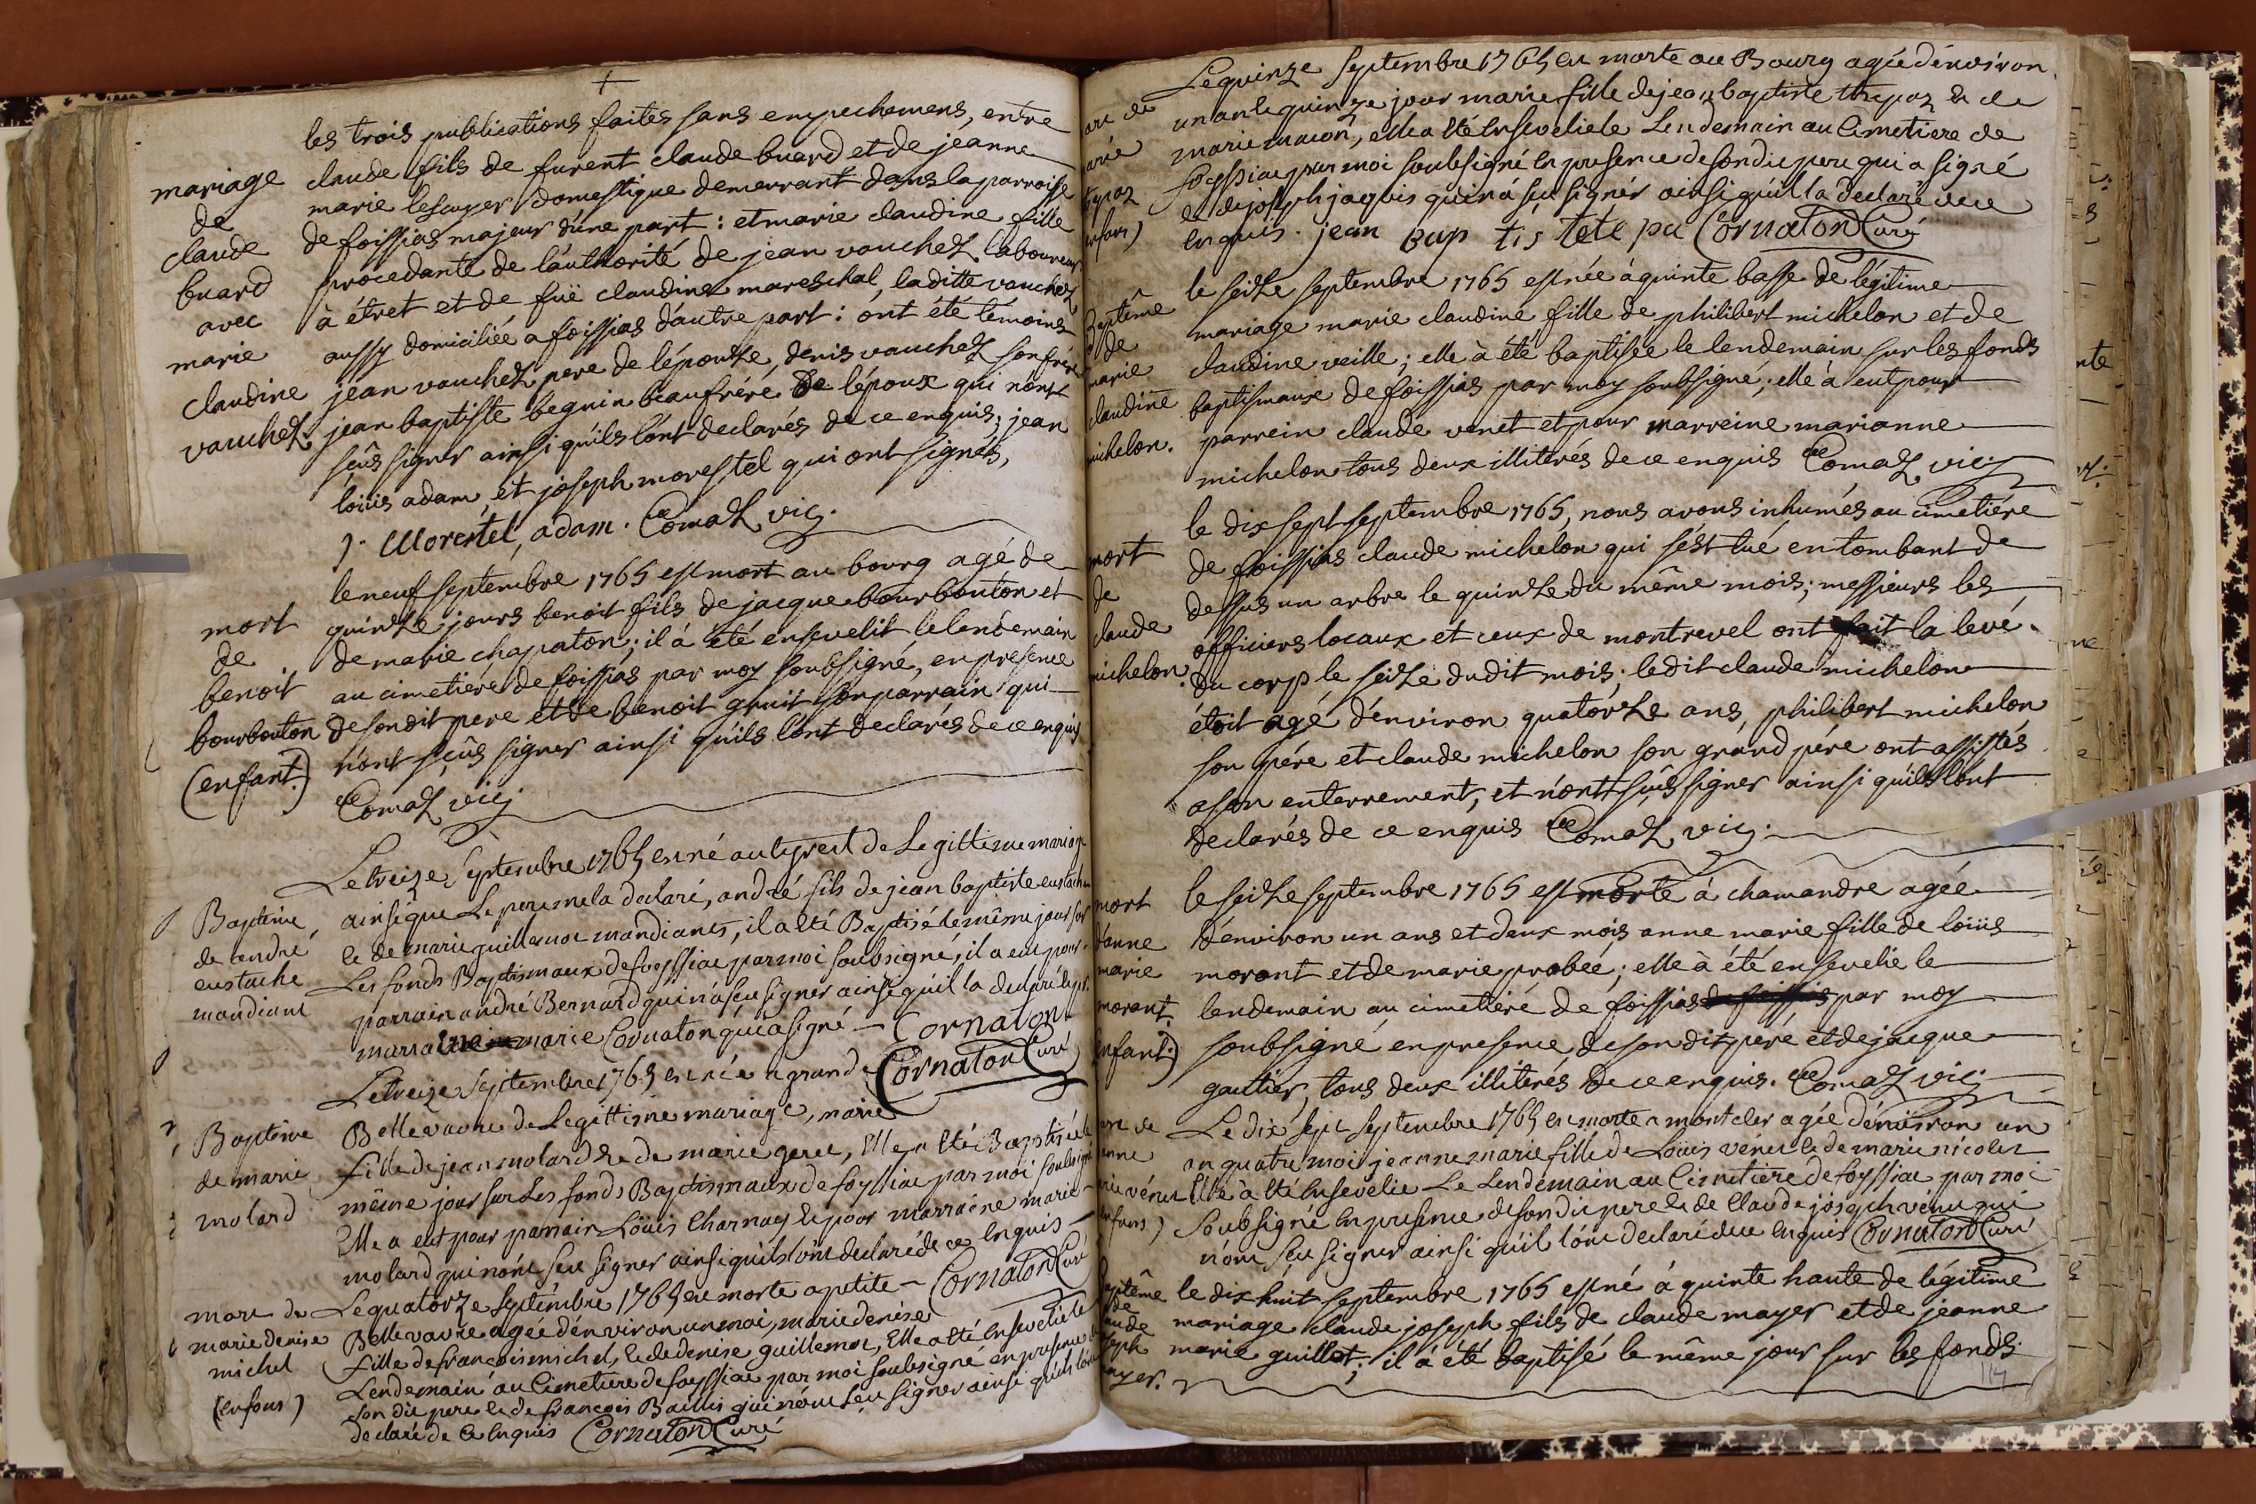 les trois publications faites sans empechemens, entre
mariage
de
claude
buard
avec
marie
claudine
vauchez
claude fils de furent claude buard et de jeanne
marie lescuyer domestique demeurant dans la parroisse
de foissias majeur d'une part : et marie claudine fille
procedante de l'authorité de jean vauchez laboureur
à étret et de fuë claudine mareschal, la ditte vauchez
aussy domiciliée a foissias d'autre part : ont été témoins
jean vauchez pere de l'épouse, denis vauchez son frére
jean baptiste beguin beaufrére de l'époux qui n'ont
sçûs signer ainsi qu'ils l'ont declarés de ce enquis, jean
loüis adam, et joseph morestel qui ont signés,
J. Morestel, adam. Comaz vic.
mort
de
benoit
bourbouton
(enfant.)
le neuf septembre 1765 est mort au bourg agé de
quinze jours benoit fils de jacque bourbouton et
de marie chapaton; il à été ensevelit le lendemain
au cimetiére de foissias par moy soubsigné, en presence
de son dit pere et de benoit gruit son parrain qui
n'ont sçûs signer ainsi qu'ils l'ont declarés de ce enquis
Comaz vic.
Baptême
de andré
eustache
mandiant
Le treize Septembre 1765 est né au teyret de Legittime mariage
ainsi que Le pere me la declaré, andré fils de jean baptiste eustache
et de marie guillemot mandiants, il a été Baptisé le même jour sur
Les fonds Baptismaux de foyssiac par moi soubsigné, il a eut pour
parrain andré Bernard qui n'a seu signer ainsi qu'il la declaré
marraine marie Cornaton qui a signé Cornaton
Cornaton Curé
Baptême
de marie
molard
Le treize Septembre 1765 est née a grande
Bellevavre de Legittime mariage, marie
fille de jean molard et de marie geret, Elle a été Baptisée le
même jour sur Les fonds Baptismaux de foyssiac par moi soubsigné
Elle a eut pour parrain Loüis Charnay et pour marraine marie
molard qui n'ont seu signer ainsi qu'ils l'ont declaré de ce Enquis
Cornaton Curé
mort de
marie denise
michel
(enfant)
Le quatorze Septembre 1765 est morte a petite
Bellevavre agée d'environ un moi, marie denise
fille de françois michel, et de denise guillemot, Elle a été Ensevelie le
Lendemain au Cimetiere de foyssiac par moi soubsigné en presence de
son dit pere et de françois Baillis qui n'ont seu signer ainsi qu'ils l'ont
declaré de ce Enquis Cornaton Curé
Le quinze Septembre 1765 est morte au Bourg agée d'environ
un an le quinze jour marie fille de jean baptiste tetepoz et de
marie macon, elle a été Ensevelie le Lendemain au Cimetiere de
foyssiac par moi soubsigné en presence de son dit pere qui a signé
et de joseph jacquis qui n'a seu signer ainsi qu'il la declaré de ce
Enquis. jean bap tis tete pa Cornaton Curé
Baptême
de
marie
claudine
michelon.
le seize septembre 1765 est née à quinte basse de légitime
mariage marie claudine fille de philibert michelon et de
claudine veille; elle à été baptisée le lendemain sur les fonds
baptismaux de foissias par moy soubsigné; elle à eut pour
parrein claude venet et pour marreine marianne
michelon tous deux illiterés de ce enquis Comaz vic.
mort
de
claude
michelon.
le dix sept septembre 1765, nous avons inhumés au cimetiére
de foissias claude michelon qui s'est tué en tombant de
dessus un arbre le quinze du même mois; messieurs les
officiers locaux et ceux de montrevel ont fait la levé
du corp le seize du dit mois; le dit claude michelon
étoit agé d'environ quatorze ans, philibert michelon
son pére et claude michelon son grand pére ont assistés
a son enterrement, et n'ont sçûs signer ainsi qu'ils l'ont
declarés de ce enquis Comaz vic.
mort
d'anne
marie
morant
(enfant.)
le seize septembre 1765 est morte à chamandre agée
d'environ un ans et deux mois anne marie fille de loüis
morant et de marie probée; elle à été ensevelie le
lendemain au cimetiére de foissias par moy
soubsigné en presence de son dit péré et de jacque
gautier, tous deux illiterés de ce enquis. Comaz vic.
Le dix sept Septembre 1765 est morte a montcler agée d'environ un
an quatre moi jeanne marie fille de Loüis vénet et de marie nicolet
Elle à été Ensevelie Le Lendemain au Cimetiere de foyssiac par moi
Soubsigné En presence de son dit pere et de Claude joseph vénet qui
n'ont seu signer ainsi qu'il l'ont declaré de ce Enquis Cornaton Curé
le dix huit septembre 1765 est né à quinte haute de légitime
mariage claude joseph fils de claude mayer et de jeanne
marie guillot; il à été baptisé le même jour sur les fonds